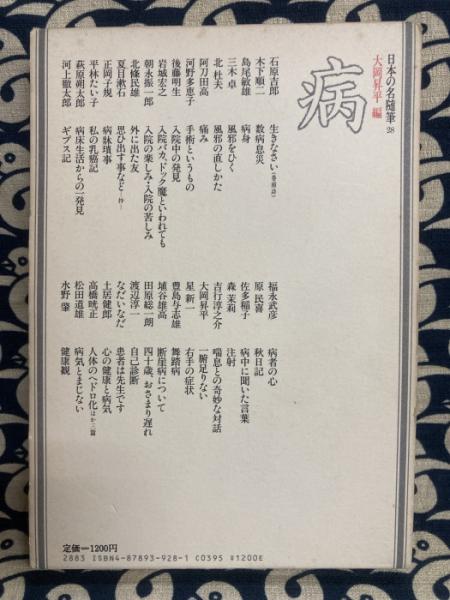 日本の名随筆 28
大岡昇平 編
病
石原吉郎 生きなさい(巻頭詩)
木下順二 数病息災
島尾敏雄 病身
三木 卓 風邪をひく
北 杜夫 風邪の直しかた
阿刀田高 痛み
河野多恵子 手術というもの
後藤明生 入院中の発見
岩城宏之 入院バカ、ドック魔といわれても
朝永振一郎 入院の楽しみ・入院の苦しみ
北條民雄 外に出た友
夏目漱石 思ひ出す事など―抄―
正岡子規 病牀瑣事
平林たい子 私の乳癌記
萩原朔太郎 病床生活からの一発見
河上徹太郎 ギプス記
福永武彦 病者の心
原 民喜 秋日記
佐多稲子 病中に聞いた言葉
森 茉莉 注射
吉行淳之介 喘息との奇妙な対話
大岡昇平 一腑足りない
星 新一 右手の症状
豊島与志雄 舞踏病
埴谷雄高 断崖病について
田原総一朗 四十歳、おさまり遅れ
渡辺淳一 自己診断
なだいなだ 患者は先生です
土居健郎 心の健康と病気
高橋晄正 人体のヘドロ化ほか三篇
松田道雄 病気とまじない
水野 肇 健康観
定価―1200円
2883 ISBN4-87893-928-1 C0395 ¥1200E